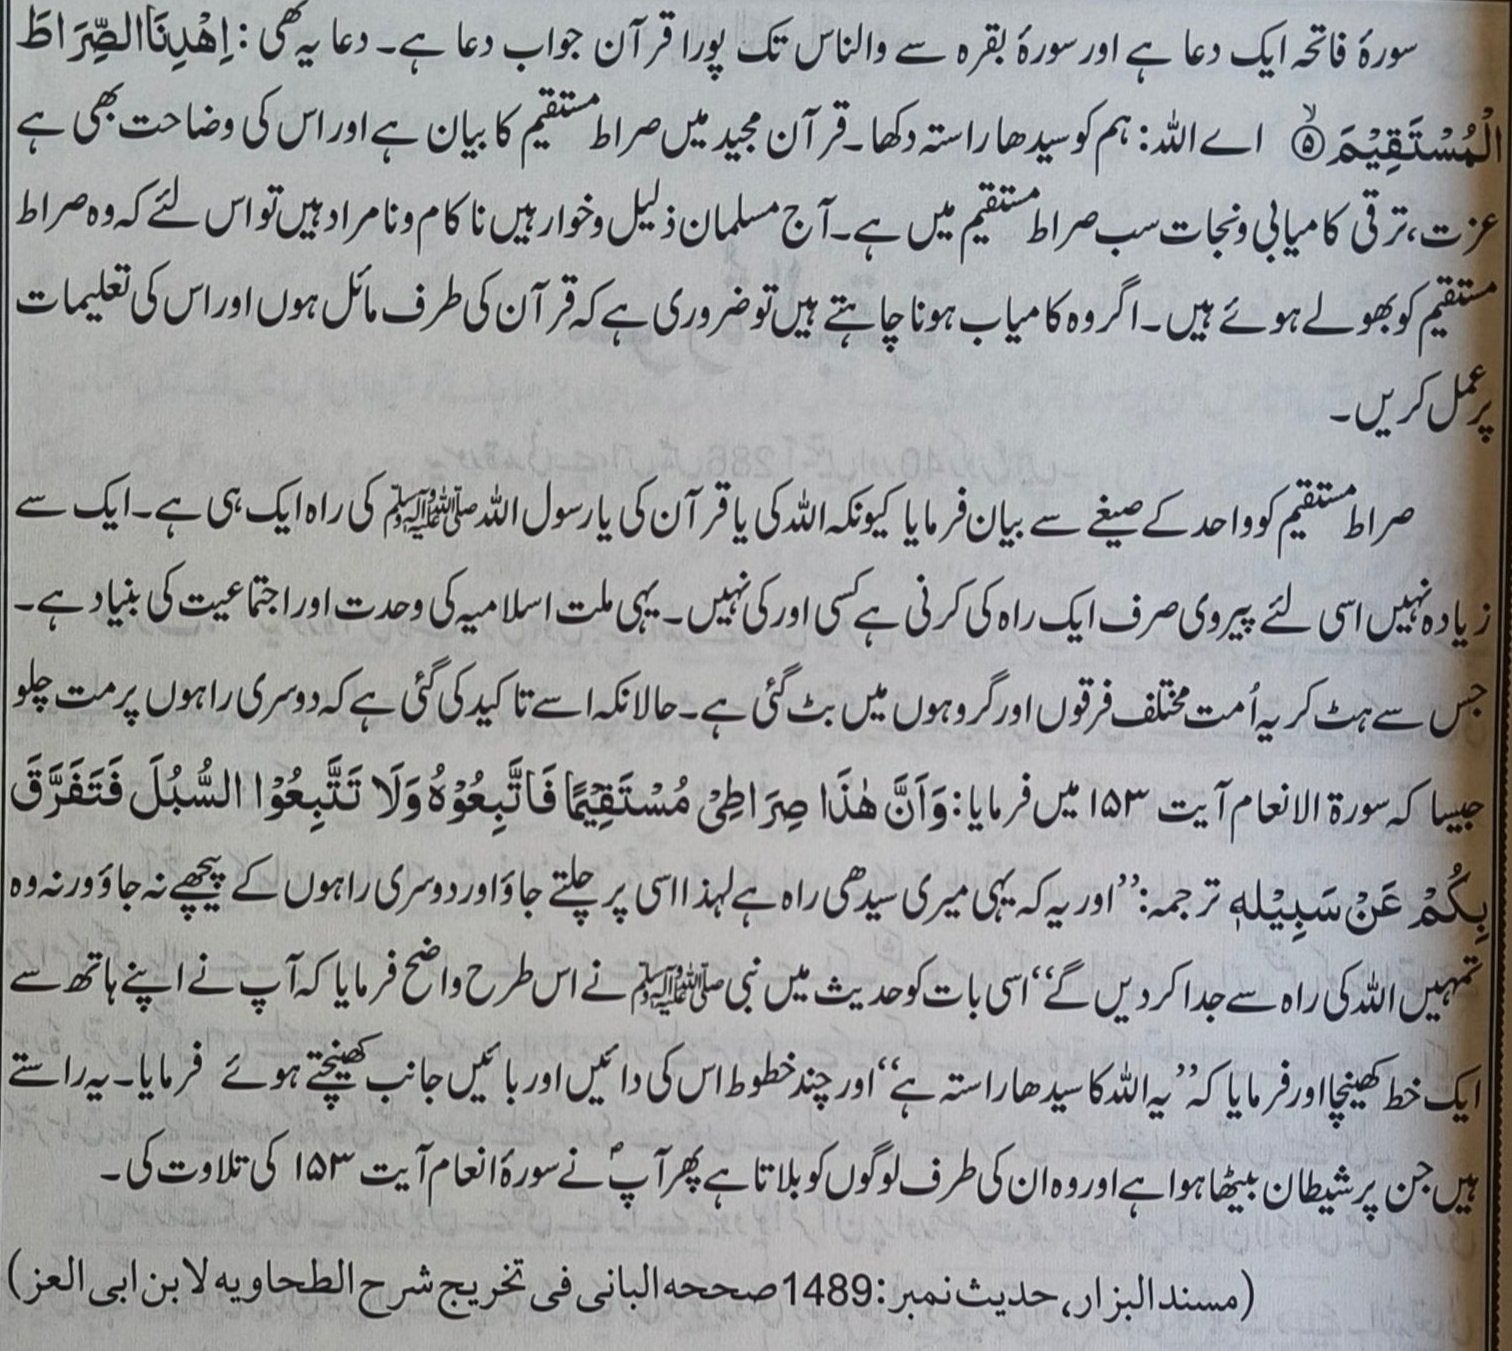 سورۂ فاتحہ ایک دعا ہے اور سورۂ بقرہ سے والناس تک پورا قرآن جواب دعا ہے۔ دعا یہ تھی: اِهْدِنَا الصِّرَاطَ
الْمُسْتَقِيْمَ ۙ۵ اے اللہ: ہم کو سیدھا راستہ دکھا۔ قرآن مجید میں صراط مستقیم کا بیان ہے اور اس کی وضاحت بھی ہے
عزت، ترقی کامیابی و نجات سب صراط مستقیم میں ہے۔ آج مسلمان ذلیل و خوار ہیں ناکام و نامراد ہیں تو اس لئے کہ وہ صراط
مستقیم کو بھولے ہوئے ہیں۔ اگر وہ کامیاب ہونا چاہتے ہیں تو ضروری ہے کہ قرآن کی طرف مائل ہوں اور اس کی تعلیمات
پر عمل کریں۔
صراط مستقیم کو واحد کے صیغے سے بیان فرمایا کیونکہ اللہ کی یا قرآن کی یا رسول اللہ ﷺ کی راہ ایک ہی ہے۔ ایک سے
زیادہ نہیں اسی لئے پیروی صرف ایک راہ کی کرنی ہے کسی اور کی نہیں۔ یہی ملت اسلامیہ کی وحدت اور اجتماعیت کی بنیاد ہے۔
جس سے ہٹ کر یہ اُمت مختلف فرقوں اور گروہوں میں بٹ گئی ہے۔ حالانکہ اسے تاکید کی گئی ہے کہ دوسری راہوں پر مت چلو
جیسا کہ سورۃ الانعام آیت ۱۵۳ میں فرمایا: وَاَنَّ هٰذَا صِرَاطِيْ مُسْتَقِيْمًا فَاتَّبِعُوْهُ وَلَا تَتَّبِعُوْا السُّبُلَ فَتَفَرَّقَ
بِكُمْ عَنْ سَبِيْلِهٖ ترجمہ: ’’اور یہ کہ یہی میری سیدھی راہ ہے لہذا اسی پر چلتے جاؤ اور دوسری راہوں کے پیچھے نہ جاؤ ورنہ وہ
تمہیں اللہ کی راہ سے جدا کر دیں گے‘‘ اسی بات کو حدیث میں نبی ﷺ نے اس طرح واضح فرمایا کہ آپ نے اپنے ہاتھ سے
ایک خط کھینچا اور فرمایا کہ ’’یہ اللہ کا سیدھا راستہ ہے‘‘ اور چند خطوط اس کی دائیں اور بائیں جانب کھینچتے ہوئے فرمایا۔ یہ راستے
ہیں جن پر شیطان بیٹھا ہوا ہے اور وہ ان کی طرف لوگوں کو بلاتا ہے پھر آپؐ نے سورۂ انعام آیت ۱۵۳ کی تلاوت کی۔
(مسند البزار، حدیث نمبر: 1489 صححه البانی فی تخریج شرح الطحاویه لابن ابی العز)